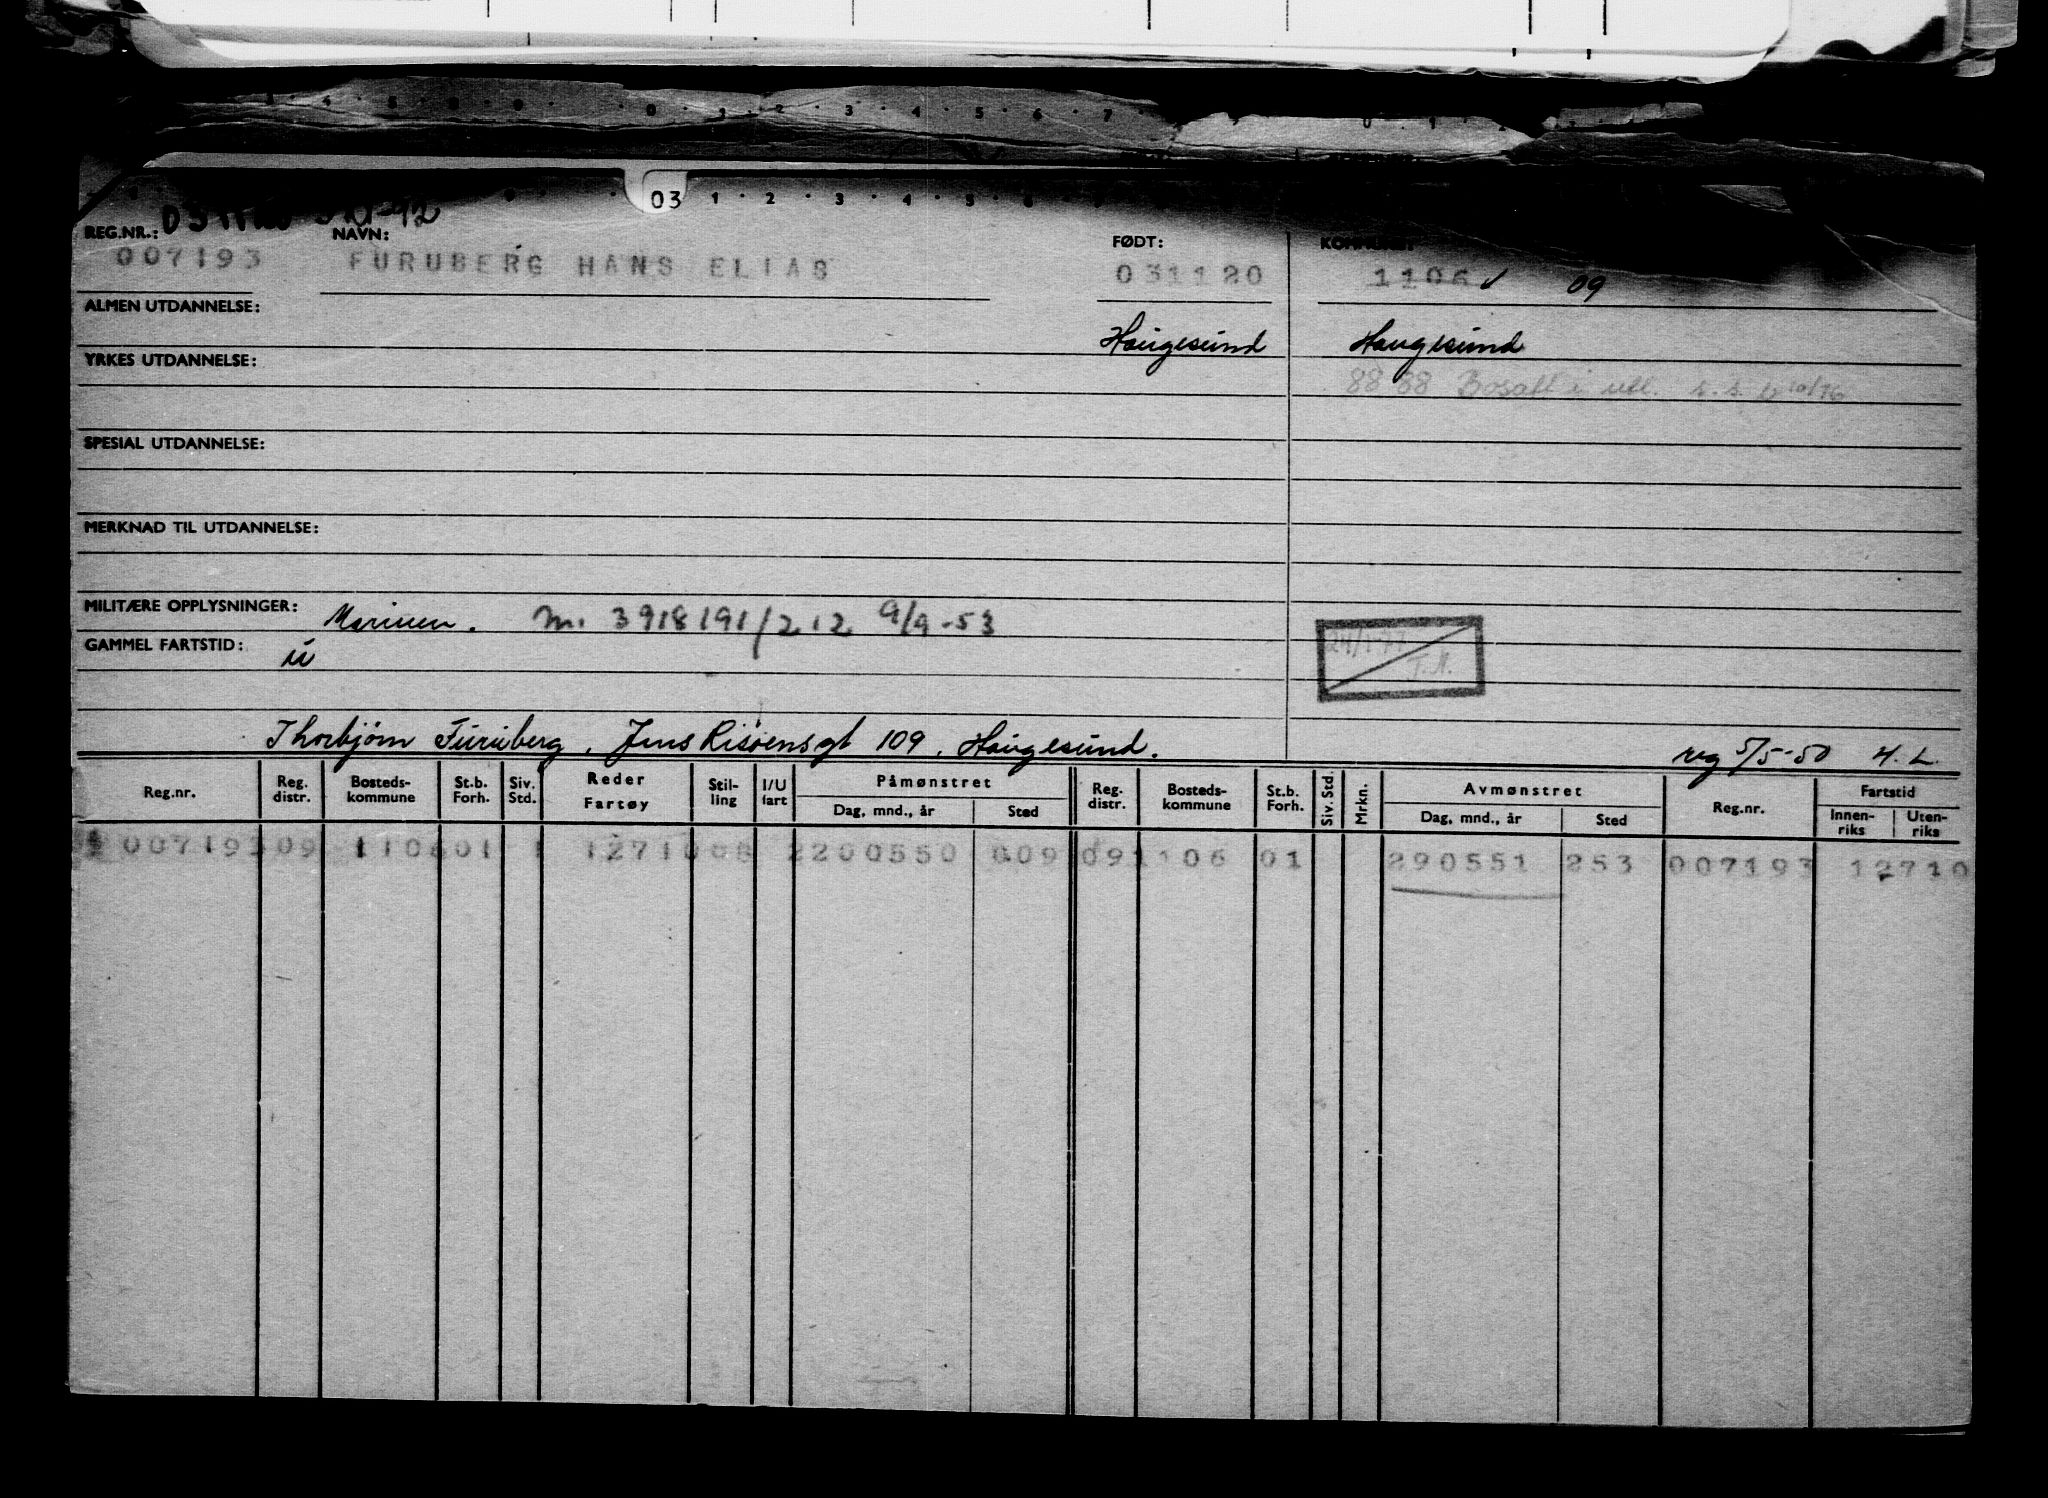 4 · 5 · 8 · 9 · · 0 · 1 · 2 · 3 · 4 · 5 · 6 · 7 ·
03 1 · 2 · 3 · 4 · 5
REG.NR.: NAVN: FØDT:
007193 FURUBERG HANS ELIAS 031120 1106 ✓ 09
ALMEN UTDANNELSE:
Haugesund Haugesund
YRKES UTDANNELSE:
88 88 Bosatt i utl.
SPESIAL UTDANNELSE:
MERKNAD TIL UTDANNELSE:
MILITÆRE OPPLYSNINGER: Marinen. M. 3918191/212 9/9-53
GAMMEL FARTSTID: U
24/1-77
Thorbjørn Furuberg, Jens Risøensgt 109, Haugesund. reg 5/5-50 H.L.
Reg.nr. Reg. distr. Bosteds-kommune St.b. Forh. Siv. Std. Reder Fartøy Stil-ling I/U fart Påmønstret Dag, mnd., år Sted Reg. distr. Bosteds-kommune St.b. Forh. Siv. Std. Mrkn. Avmønstret Dag, mnd., år Sted Reg.nr. Fartstid Innen-riks Uten-riks
007193 09 1106 01 1 12710 2 200550 009 09 1106 01 290551 253 007193 12710